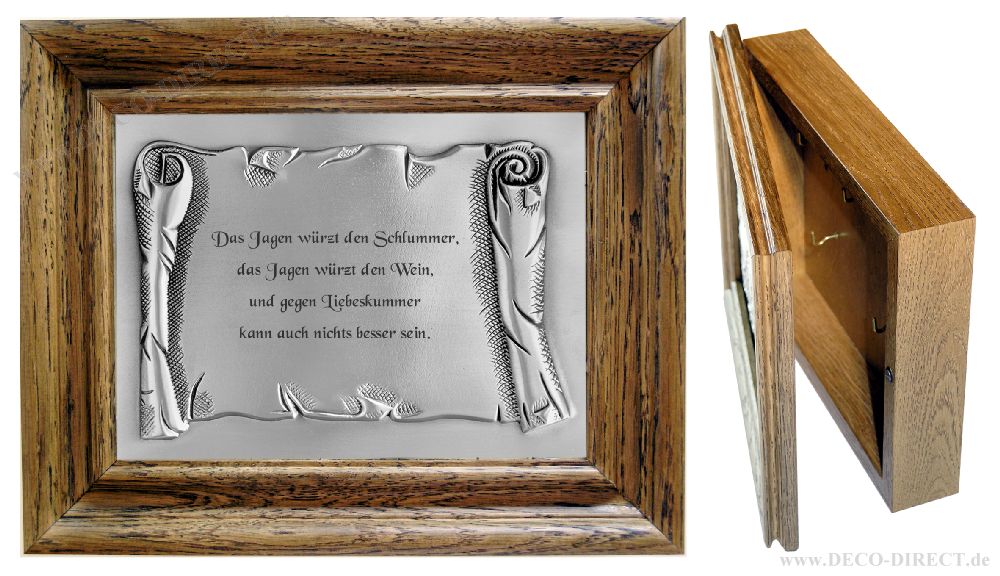 Das Jagen würzt den Schlummer,
das Jagen würzt den Wein,
und gegen Liebeskummer
kann auch nichts besser sein.
www.DECO-DIRECT.de